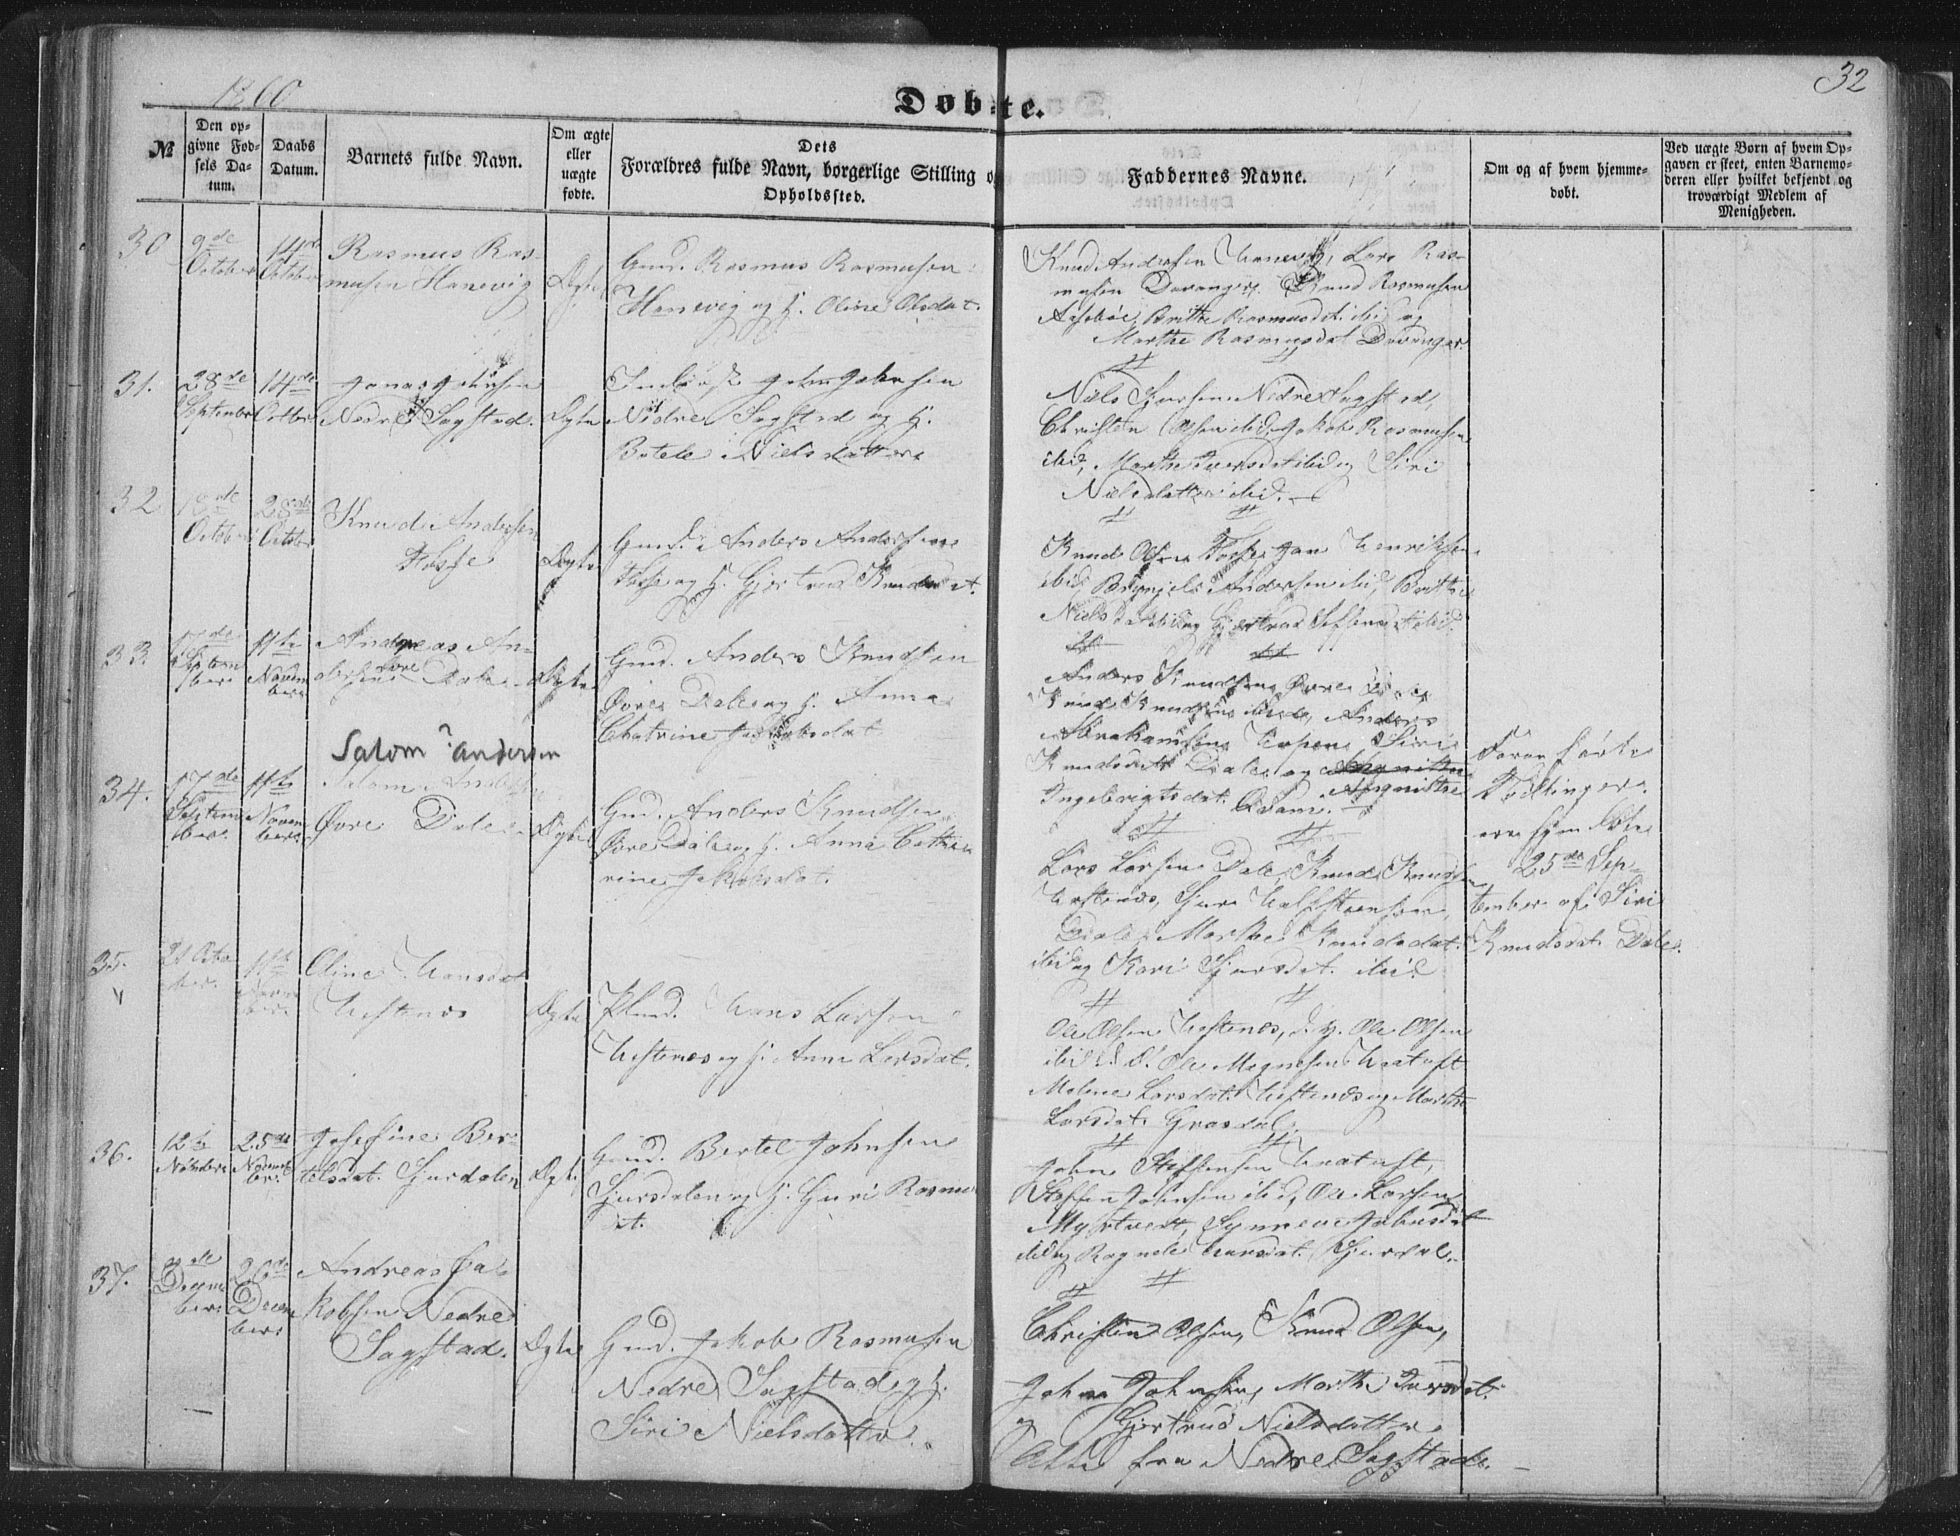 1860
32
Døbte.
№
Den op-
givne Fød-
sels Da-
tum.
Daabs
Datum.
Barnets fulde Navn.
Om ægte
eller
uægte
fødte.
Dets
Forældres fulde Navn, borgerlige Stilling og
Opholdssted.
Faddernes Navne.
Om og af hvem hjemme-
døbt.
Ved uægte Børn af hvem Op-
gaven er skeet, enten Barnemo-
deren eller hvilket bekjendt og
troværdigt Medlem af
Menigheden.
30
9de
October
14de
October
Rasmus Ras-
musen Hanevig
Ægte
Gmd. Rasmus Rasmusen
Hanevig og H. Oline Olsdat.
Knud Andersen Hanevig, Lars Ras-
musen Davanger, Knud Rasmusen
Britte Rasmusdat. ibid og
Marthe Rasmusdat. Davanger
31.
28de
September
14de
Octbr
Jonas Johnsen
Nedre Sagstad.
Ægte
John Johnsen
Nedre Sagstad og H.
Botele Nielsdatter
Niels Sjursen Nedre Sagstad,
Christen Olsen ibid, Jakob Rasmusen
ibid, Marthe Iversdat ibid og Siri
Nielsdatter ibid.
32
18de
October
28de
October
Knud Andersen
Fosse
Ægte
Gmd. Anders Andersen
Fosse og H. Gjertrud Knudsdat.
Knud Olsen Fosse, Jan Henriksen
ibid, Brynjel Andersen ibid, Britte
Nielsdat ibid og Gjertrud Steffensdat ibid.
33.
17de
Septem
ber
11te
Novem
ber
Andreas An-
dersen Øvre Dale
Ægte
Gmd. Anders Knudsen
Øvre Dale og H. Anna
Chatrine Jakobsdat
Anders Knudsen Øvre Dale
Knud Knudsen ibid, Anders
Abrahamsen Siri
Knudsdat Dale og
Ingebrigtsdat. Ådam.
Salom? Andersen
34.
17de
Septem
ber
11te
Novem
ber
Salom Andersen
Øvre Dale
Ægte
Gmd. Anders Knudsen
Øvre Dale og H. Anna Cath
rine Jakobsdat.
Lars Larsen Dale, Knud Knudsen
Hestenes, Sjur Halfsteensen
Dale, Marthe Knudsdat.
ibid og Kari Sjursdat. ibid
Foranførte
Tvillinger
ere hjemdøbte
25de Sep-
tember af Siri
Knudsdat. Dale.
35.
21 Octo
ber.
11te
Novem
ber
Oline Hansdat
Hestenes
Ægte
Plmd. Hans Larsen
Hestenes og H. Anne Larsdat.
Ole Olsen Hestenes, d. y. Ole Olsen
ibid d. Æ. Ole Magnesen Hratuft
Malene Larsdat. Hestenes og Marthe
Larsdat. Grasdal.
36.
12te
Novbr
25de
Novem
ber.
Josefine Ber-
telsdat. Sjursdalen
Ægte
Gmd. Bertel Johnsen
Sjursdalen og H. Guri Rasmus
dat.
John Steffensen Hratuft,
Steffen Johnsen ibid, Ole Larsen
Myrtvedt, Synneve Jakobsdat
ibid og Ragnele Larsdat. Sjursdal.
37.
3de
Decem
ber
26de
Decem
ber
Andreas Ja-
kobsen Nedre
Sagstad.
Ægte
Gmd. Jakob Rasmusen
Nedre Sagstad og H.
Siri Nielsdatter.
Christen Olsen, Knud Olsen,
John Johnsen, Marthe Iversdat.
og Gjertrud Nielsdatter
Alle fra Nedre Sagstad.